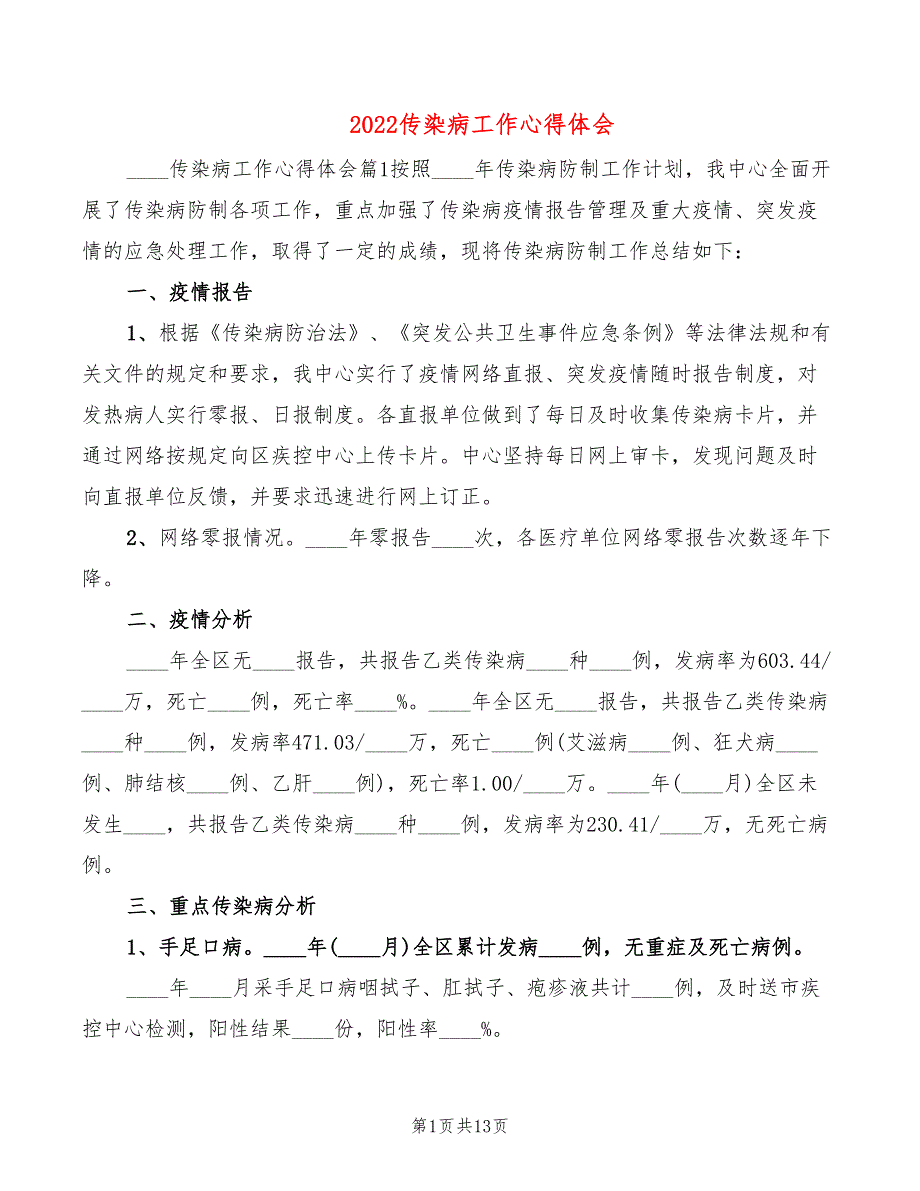 2022传染病工作心得体会
____传染病工作心得体会篇1按照____年传染病防制工作计划，我中心全面开
展了传染病防制各项工作，重点加强了传染病疫情报告管理及重大疫情、突发疫
情的应急处理工作，取得了一定的成绩，现将传染病防制工作总结如下：
一、疫情报告
1、根据《传染病防治法》、《突发公共卫生事件应急条例》等法律法规和有
关文件的规定和要求，我中心实行了疫情网络直报、突发疫情随时报告制度，对
发热病人实行零报、日报制度。各直报单位做到了每日及时收集传染病卡片，并
通过网络按规定向区疾控中心上传卡片。中心坚持每日网上审卡，发现问题及时
向直报单位反馈，并要求迅速进行网上订正。
2、网络零报情况。____年零报告____次，各医疗单位网络零报告次数逐年下
降。
二、疫情分析
____年全区无____报告，共报告乙类传染病____种____例，发病率为603.44/
____万，死亡____例，死亡率____%。____年全区无____报告，共报告乙类传染病
____种____例，发病率471.03/____万，死亡____例(艾滋病____例、狂犬病____
例、肺结核____例、乙肝____例)，死亡率1.00/____万。____年(____月)全区未
发生____，共报告乙类传染病____种____例，发病率为230.41/____万，无死亡病
例。
三、重点传染病分析
1、手足口病。____年(____月)全区累计发病____例，无重症及死亡病例。
____年____月采手足口病咽拭子、肛拭子、疱疹液共计____例，及时送市疾
控中心检测，阳性结果____份，阳性率____%。
第1页共13页